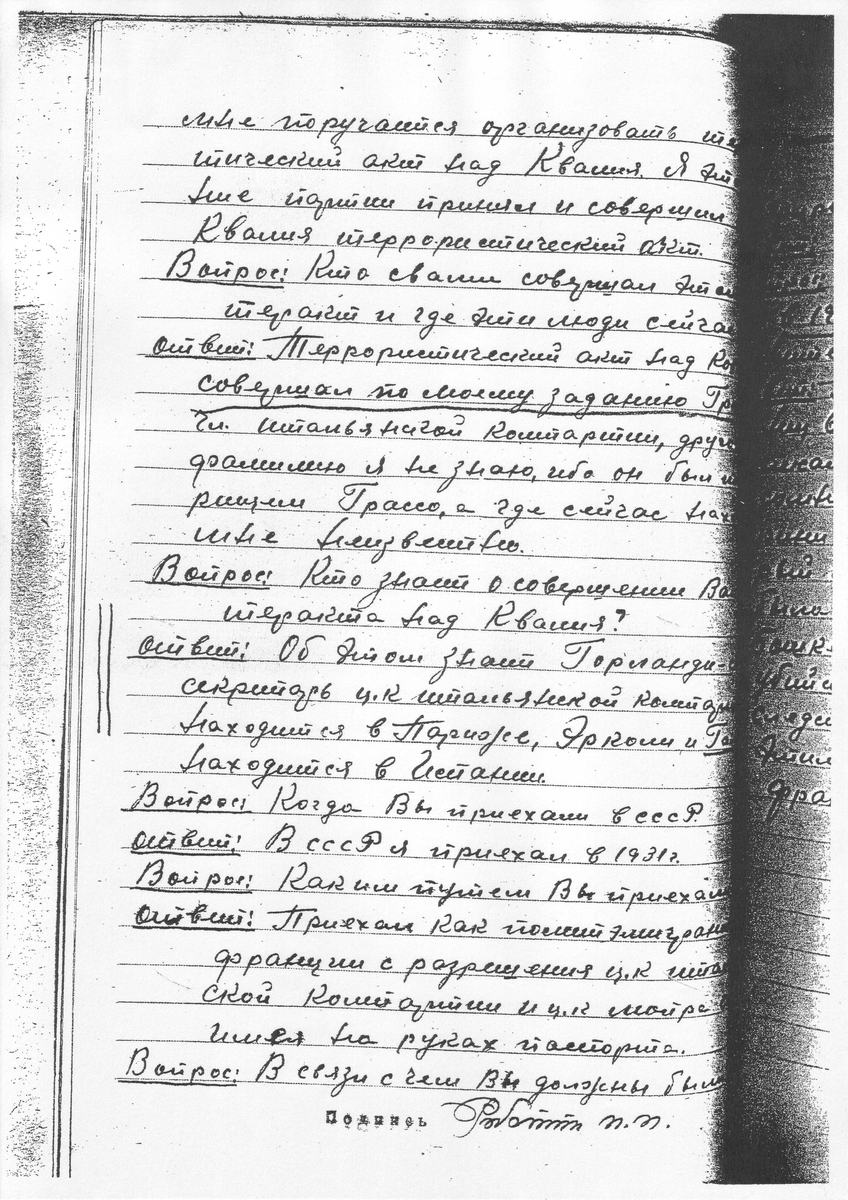 мне поручается организовать те
тический акт над Квалия. Я эт
ние партии принял и совершил
Квалия террористический акт.
Вопрос: Кто с вами совершал этот
теракт и где эти люди сейчас
Ответ: Террористический акт над Кв
совершал по моему заданию Гр
чл. итальянской компартии, друг
фамилию я не знаю, ибо он был и
рищем Грассо, а где сейчас нах
мне неизвестно.
Вопрос: Кто знает о совершении Ва
теракта над Квалия?
Ответ: Об этом знает Горланди-
секретарь ц.к итальянской компар
находится в Париже, Эрколи и Га
находится в Испании.
Вопрос: Когда Вы приехали в СССР
Ответ: В СССР я приехал в 1931 г.
Вопрос: Каким путем Вы приехал
Ответ: Приехал как политэмигран
франции с разрешения ц.к ита
ской компартии и ц.к мопра
имея на руках паспорта.
Вопрос: В связи с чем Вы должны был
Подпись Роботти П.П.